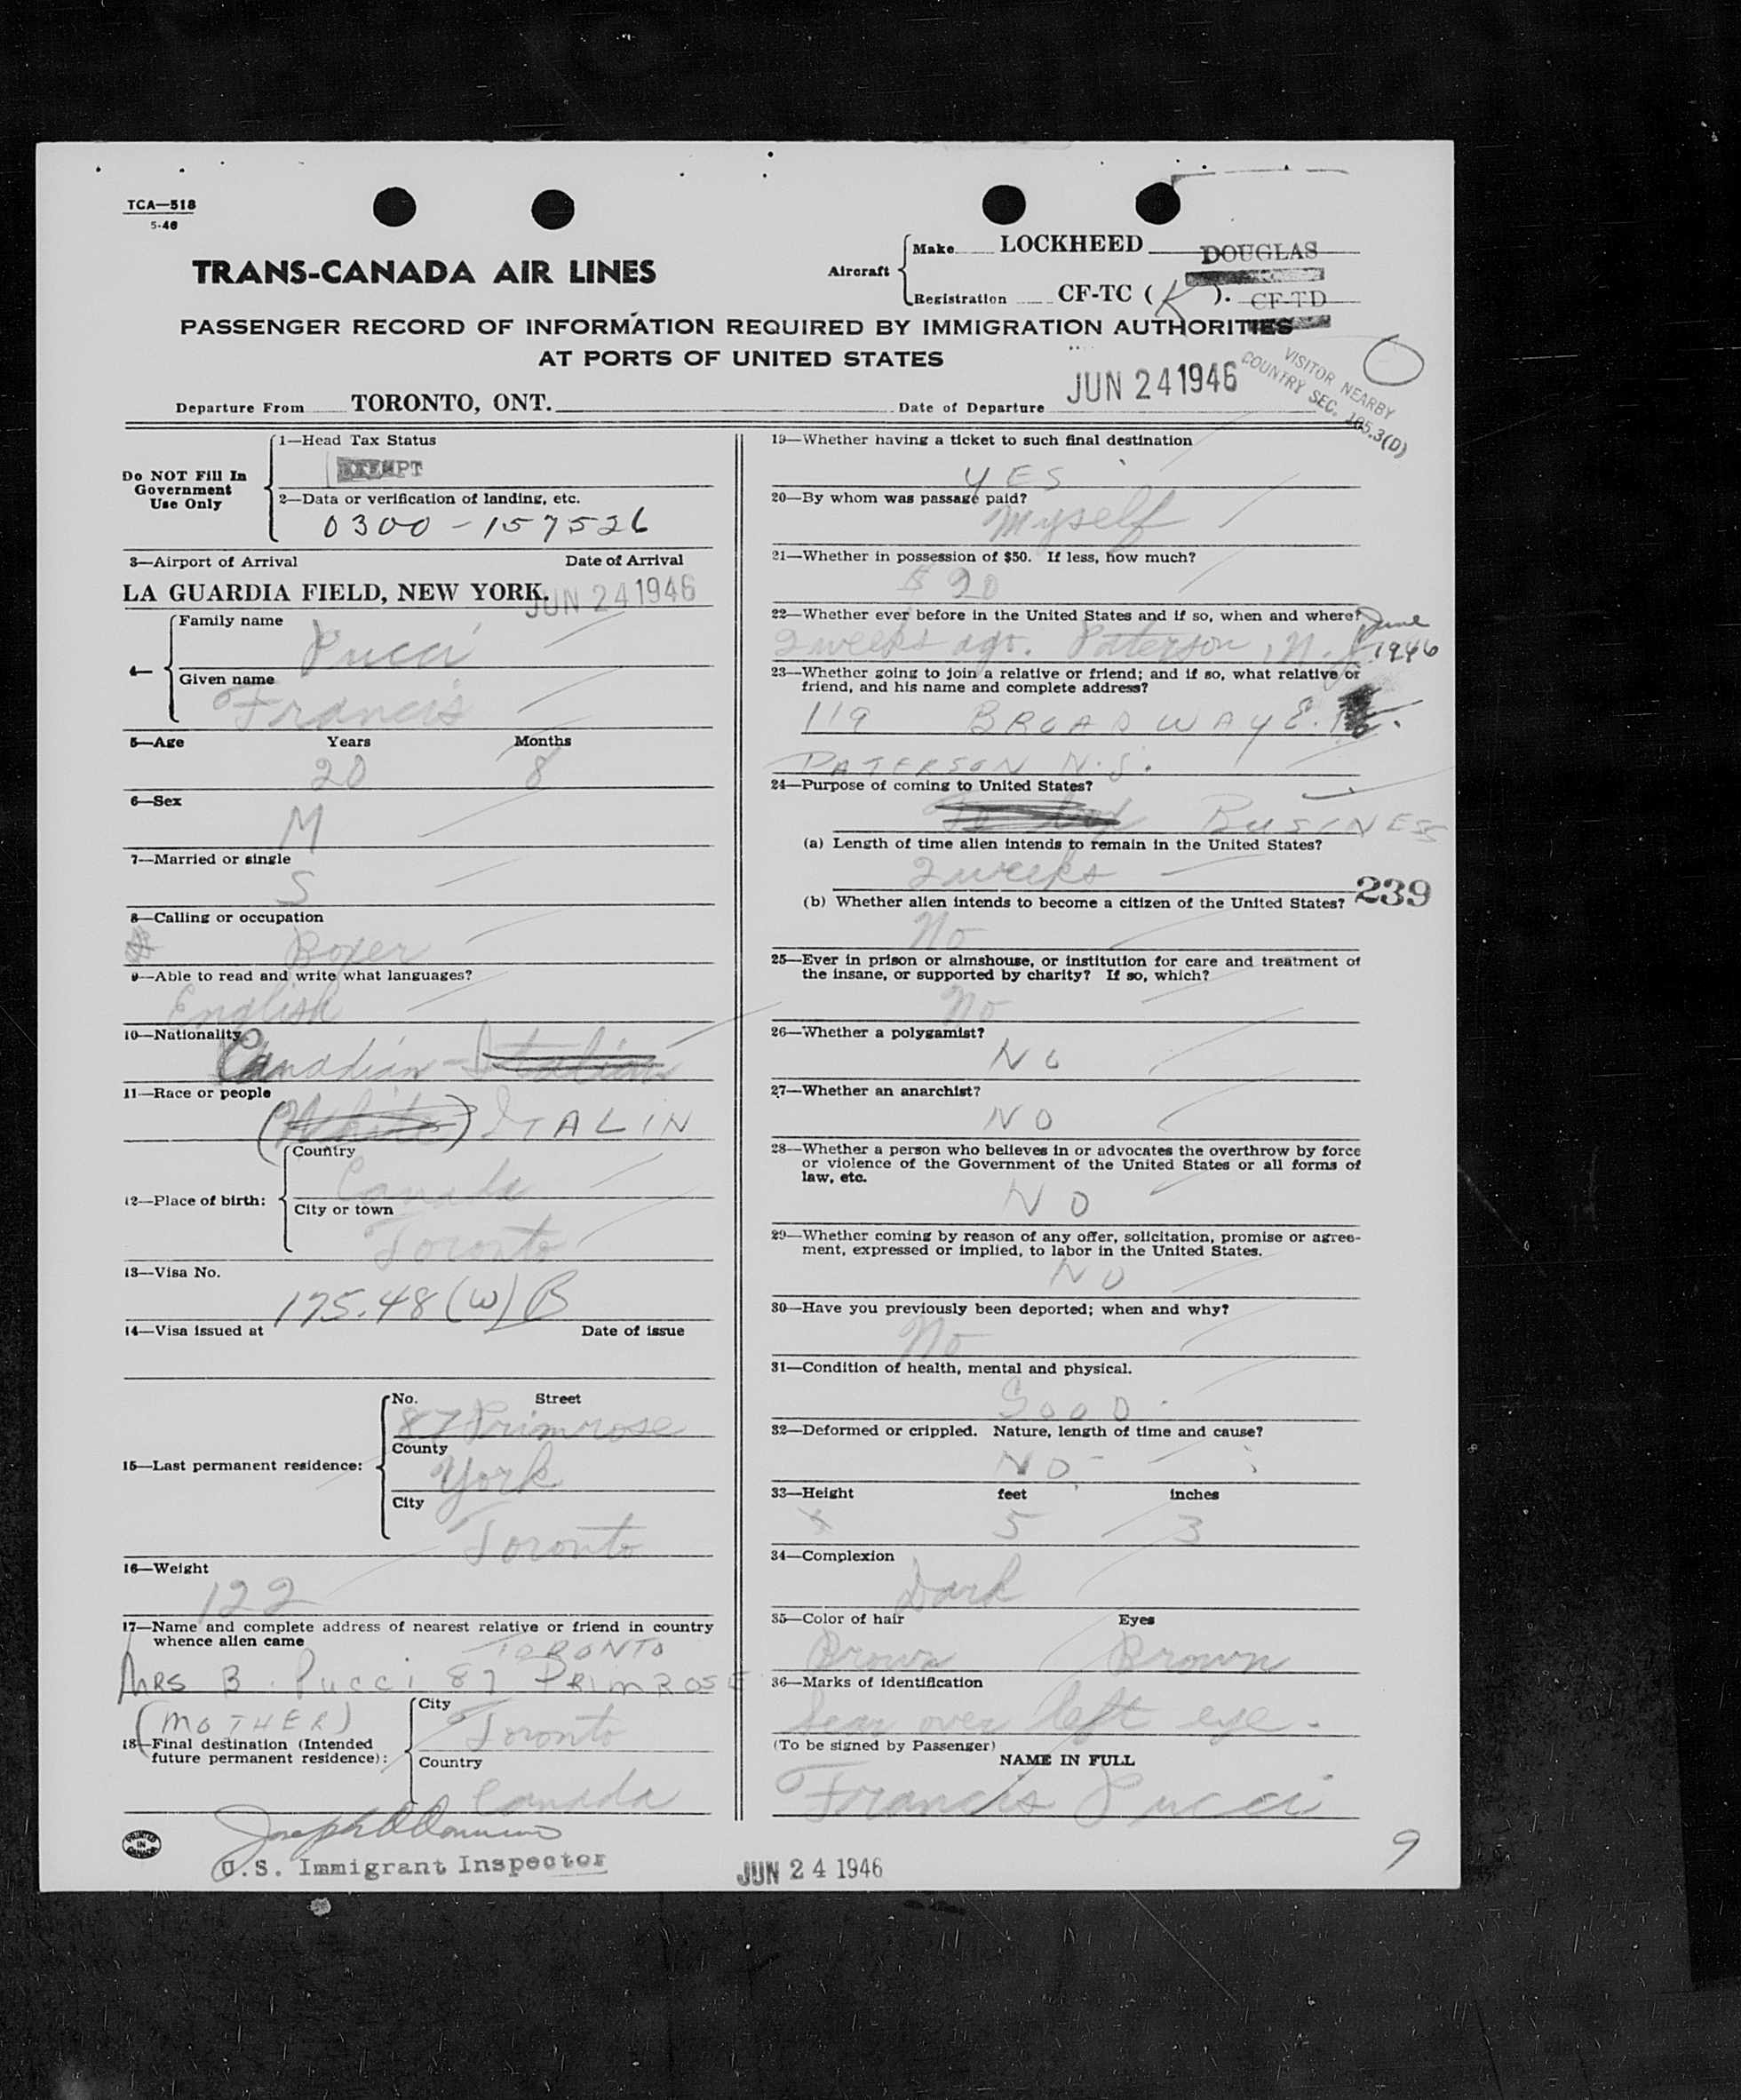 TCA—518
5-46
TRANS-CANADA AIR LINES
Aircraft
Make LOCKHEED DOUGLAS
Registration CF-TC (K). CF-TD
PASSENGER RECORD OF INFORMATION REQUIRED BY IMMIGRATION AUTHORITIES
AT PORTS OF UNITED STATES
Departure From TORONTO, ONT. Date of Departure JUN 24 1946
VISITOR NEARBY
COUNTRY SEC. 165.3(D)
Do NOT Fill In
Government
Use Only
1—Head Tax Status
EXEMPT
2—Data or verification of landing, etc.
0300-157526
3—Airport of Arrival Date of Arrival
LA GUARDIA FIELD, NEW YORK. JUN 24 1946
4—
Family name
Pucci
Given name
Francis
5—Age Years Months
20 8
6—Sex
M
7—Married or single
S
8—Calling or occupation
Boxer
9—Able to read and write what languages?
English
10—Nationality
Canadian-Italian
11—Race or people
(White) ITALIN
12—Place of birth:
Country
Canada
City or town
Toronto
13—Visa No.
175.48(W)B
14—Visa issued at Date of issue
15—Last permanent residence:
No. Street
87 Primrose
County
York
City
Toronto
16—Weight
122
17—Name and complete address of nearest relative or friend in country
whence alien came
TORONTO
MRS B. Pucci 87 PRIMROSE
(MOTHER)
18—Final destination (Intended
future permanent residence):
City
Toronto
Country
Canada
U.S. Immigrant Inspector
PRINTED
IN
CANADA
19—Whether having a ticket to such final destination
YES
20—By whom was passage paid?
Myself
21—Whether in possession of $50. If less, how much?
$ 20
22—Whether ever before in the United States and if so, when and where?
2 weeks ago. Paterson, N.J. June
1946
23—Whether going to join a relative or friend; and if so, what relative or
friend, and his name and complete address?
119 BROADWAY E.
PATERSON N.J.
24—Purpose of coming to United States?
To box BUSINESS
(a) Length of time alien intends to remain in the United States?
2 weeks
239
(b) Whether alien intends to become a citizen of the United States?
No
25—Ever in prison or almshouse, or institution for care and treatment of
the insane, or supported by charity? If so, which?
No
26—Whether a polygamist?
NO
27—Whether an anarchist?
NO
28—Whether a person who believes in or advocates the overthrow by force
or violence of the Government of the United States or all forms of
law, etc.
NO
29—Whether coming by reason of any offer, solicitation, promise or agree-
ment, expressed or implied, to labor in the United States.
NO
30—Have you previously been deported; when and why?
No
31—Condition of health, mental and physical.
GOOD.
32—Deformed or crippled. Nature, length of time and cause?
NO
33—Height feet inches
5 3
34—Complexion
Dark
35—Color of hair Eyes
Brown Brown
36—Marks of identification
Scar over left eye.
(To be signed by Passenger)
NAME IN FULL
Francis Pucci
JUN 24 1946
9